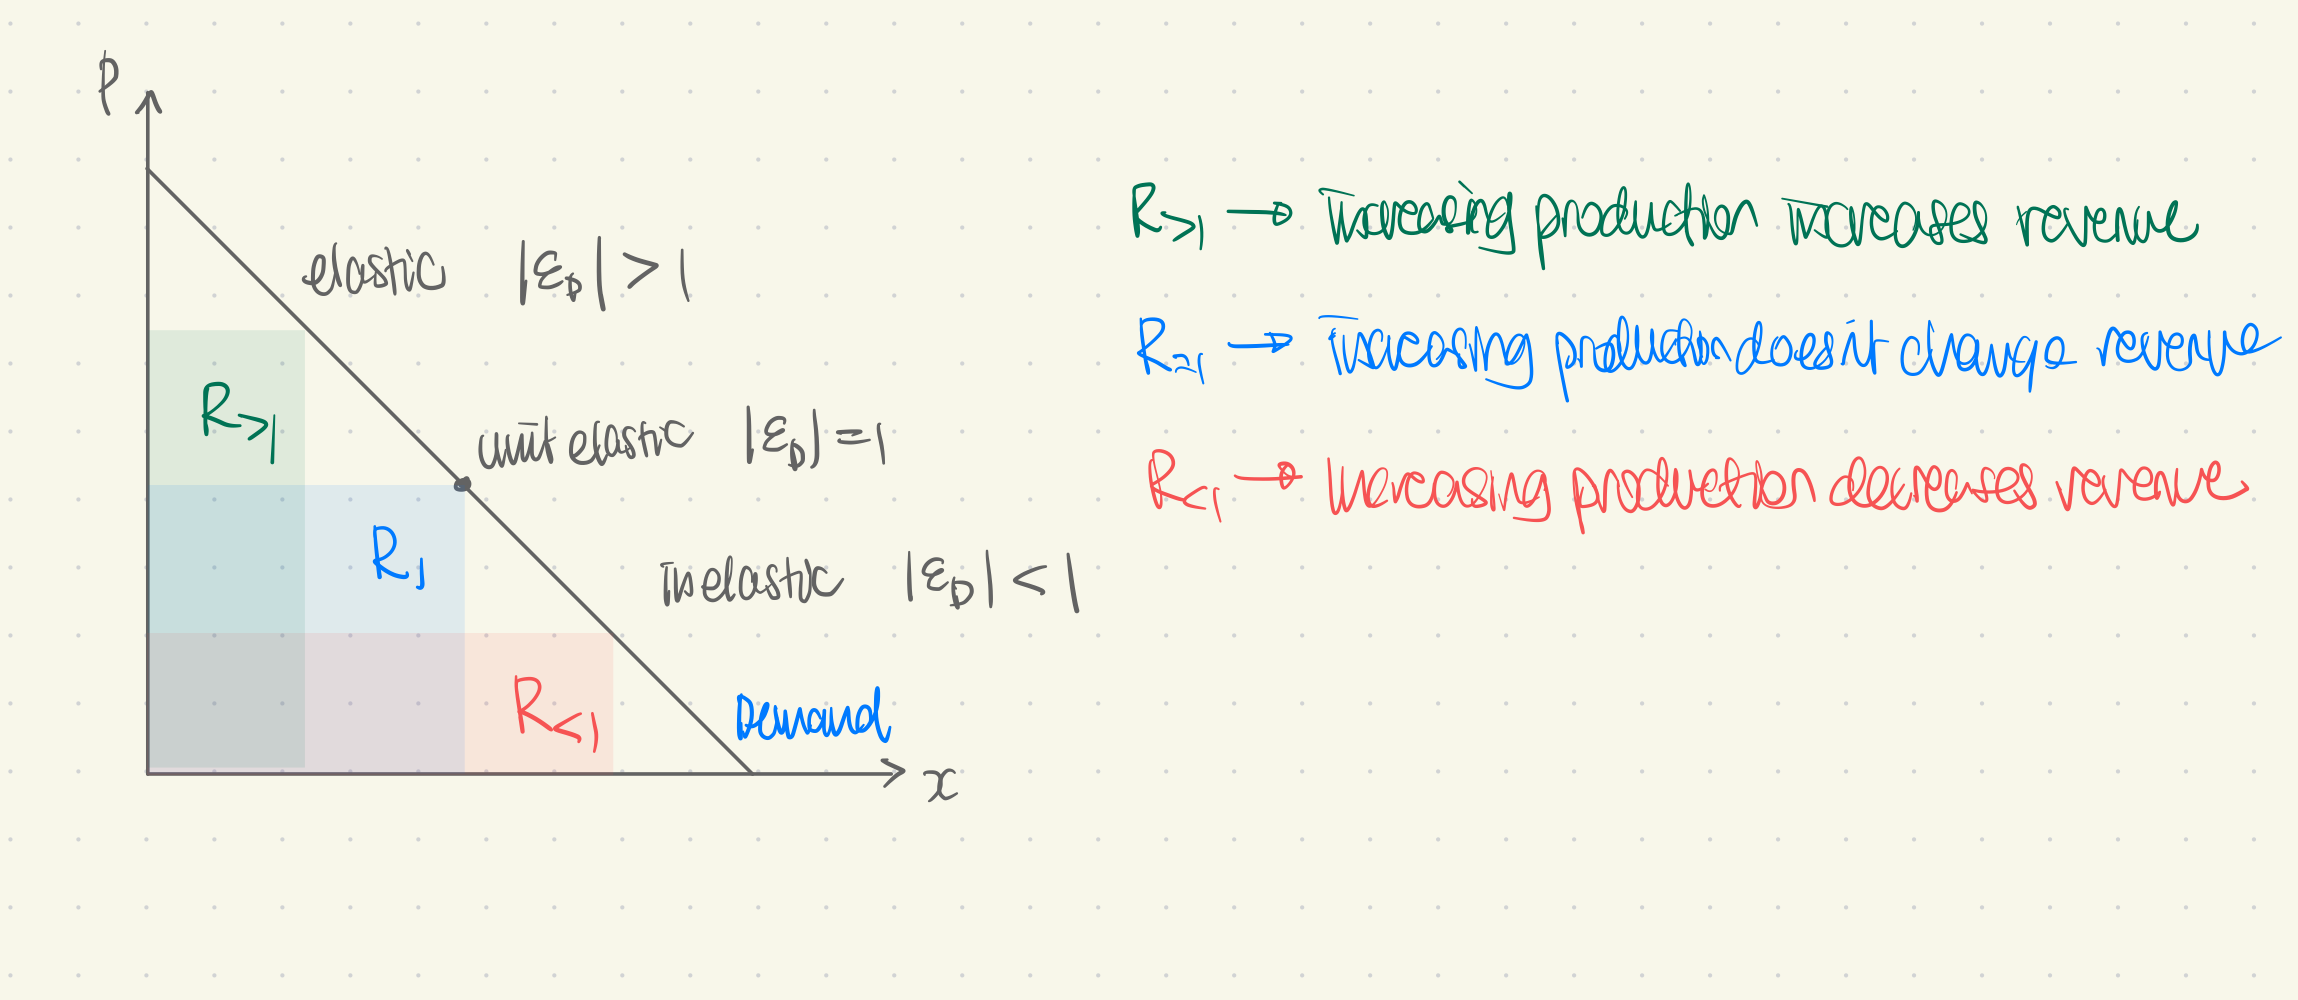 P
elastic |ε_D| > 1
R_>1
unit elastic |ε_D| = 1
R_1
inelastic |ε_D| < 1
R_<1
Demand
x
R_>1 → Increasing production increases revenue
R_=1 → Increasing production doesn't change revenue
R_<1 → Increasing production decreases revenue